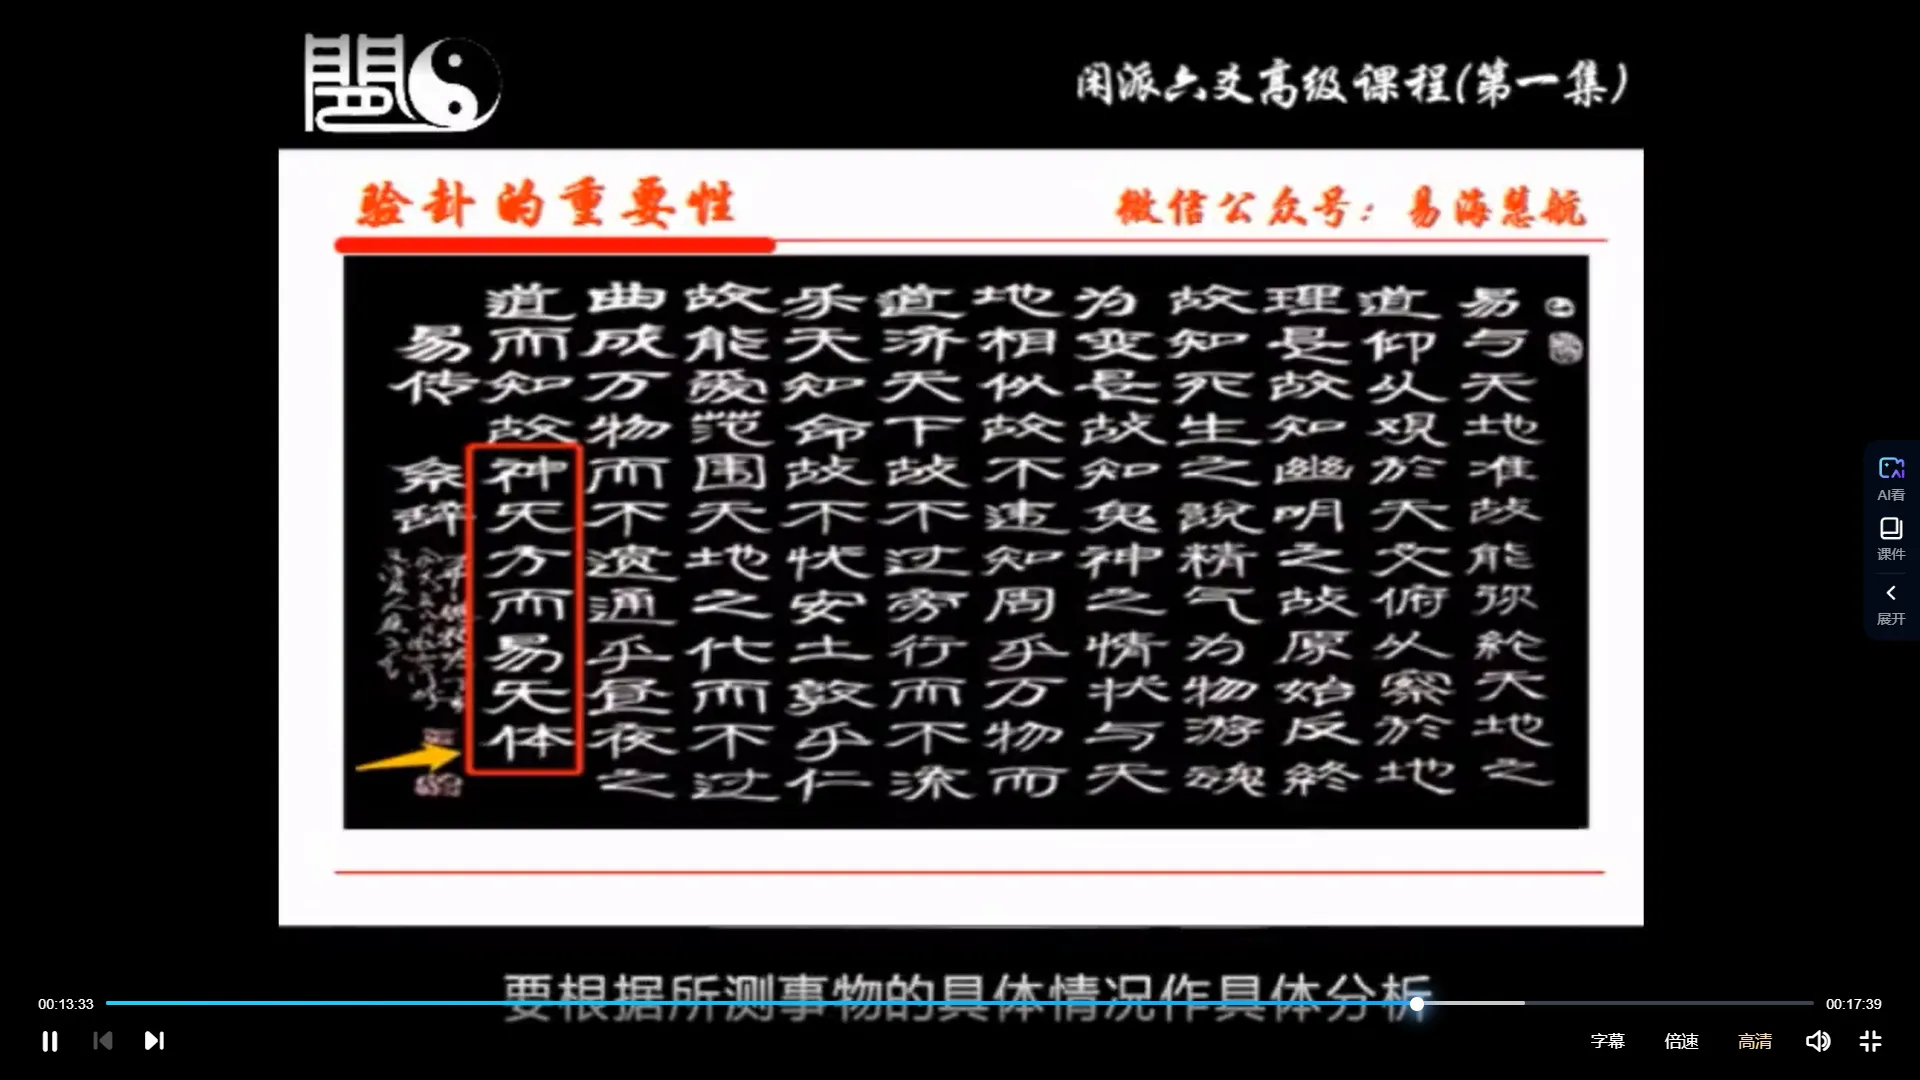 闲派六爻高级课程(第一集)
验卦的重要性
微信公众号：易海慧航
易与天地准故能弥綸天地之
道仰以观於天文俯以察於地
理是故知幽明之故原始反終
故知死生之說精气为物游魂
为变是故知鬼神之情状与天
地相似故不违知周乎万物而
道济天下故不过旁行而不流
乐天知命故不忧安土敦乎仁
故能爱范围天地之化而不过
曲成万物而不遗通乎昼夜之
道而知故神无方而易无体
易传 系辞
要根据所测事物的具体情况作具体分析
AI看
课件
展开
00:13:33
00:17:39
字幕
倍速
高清